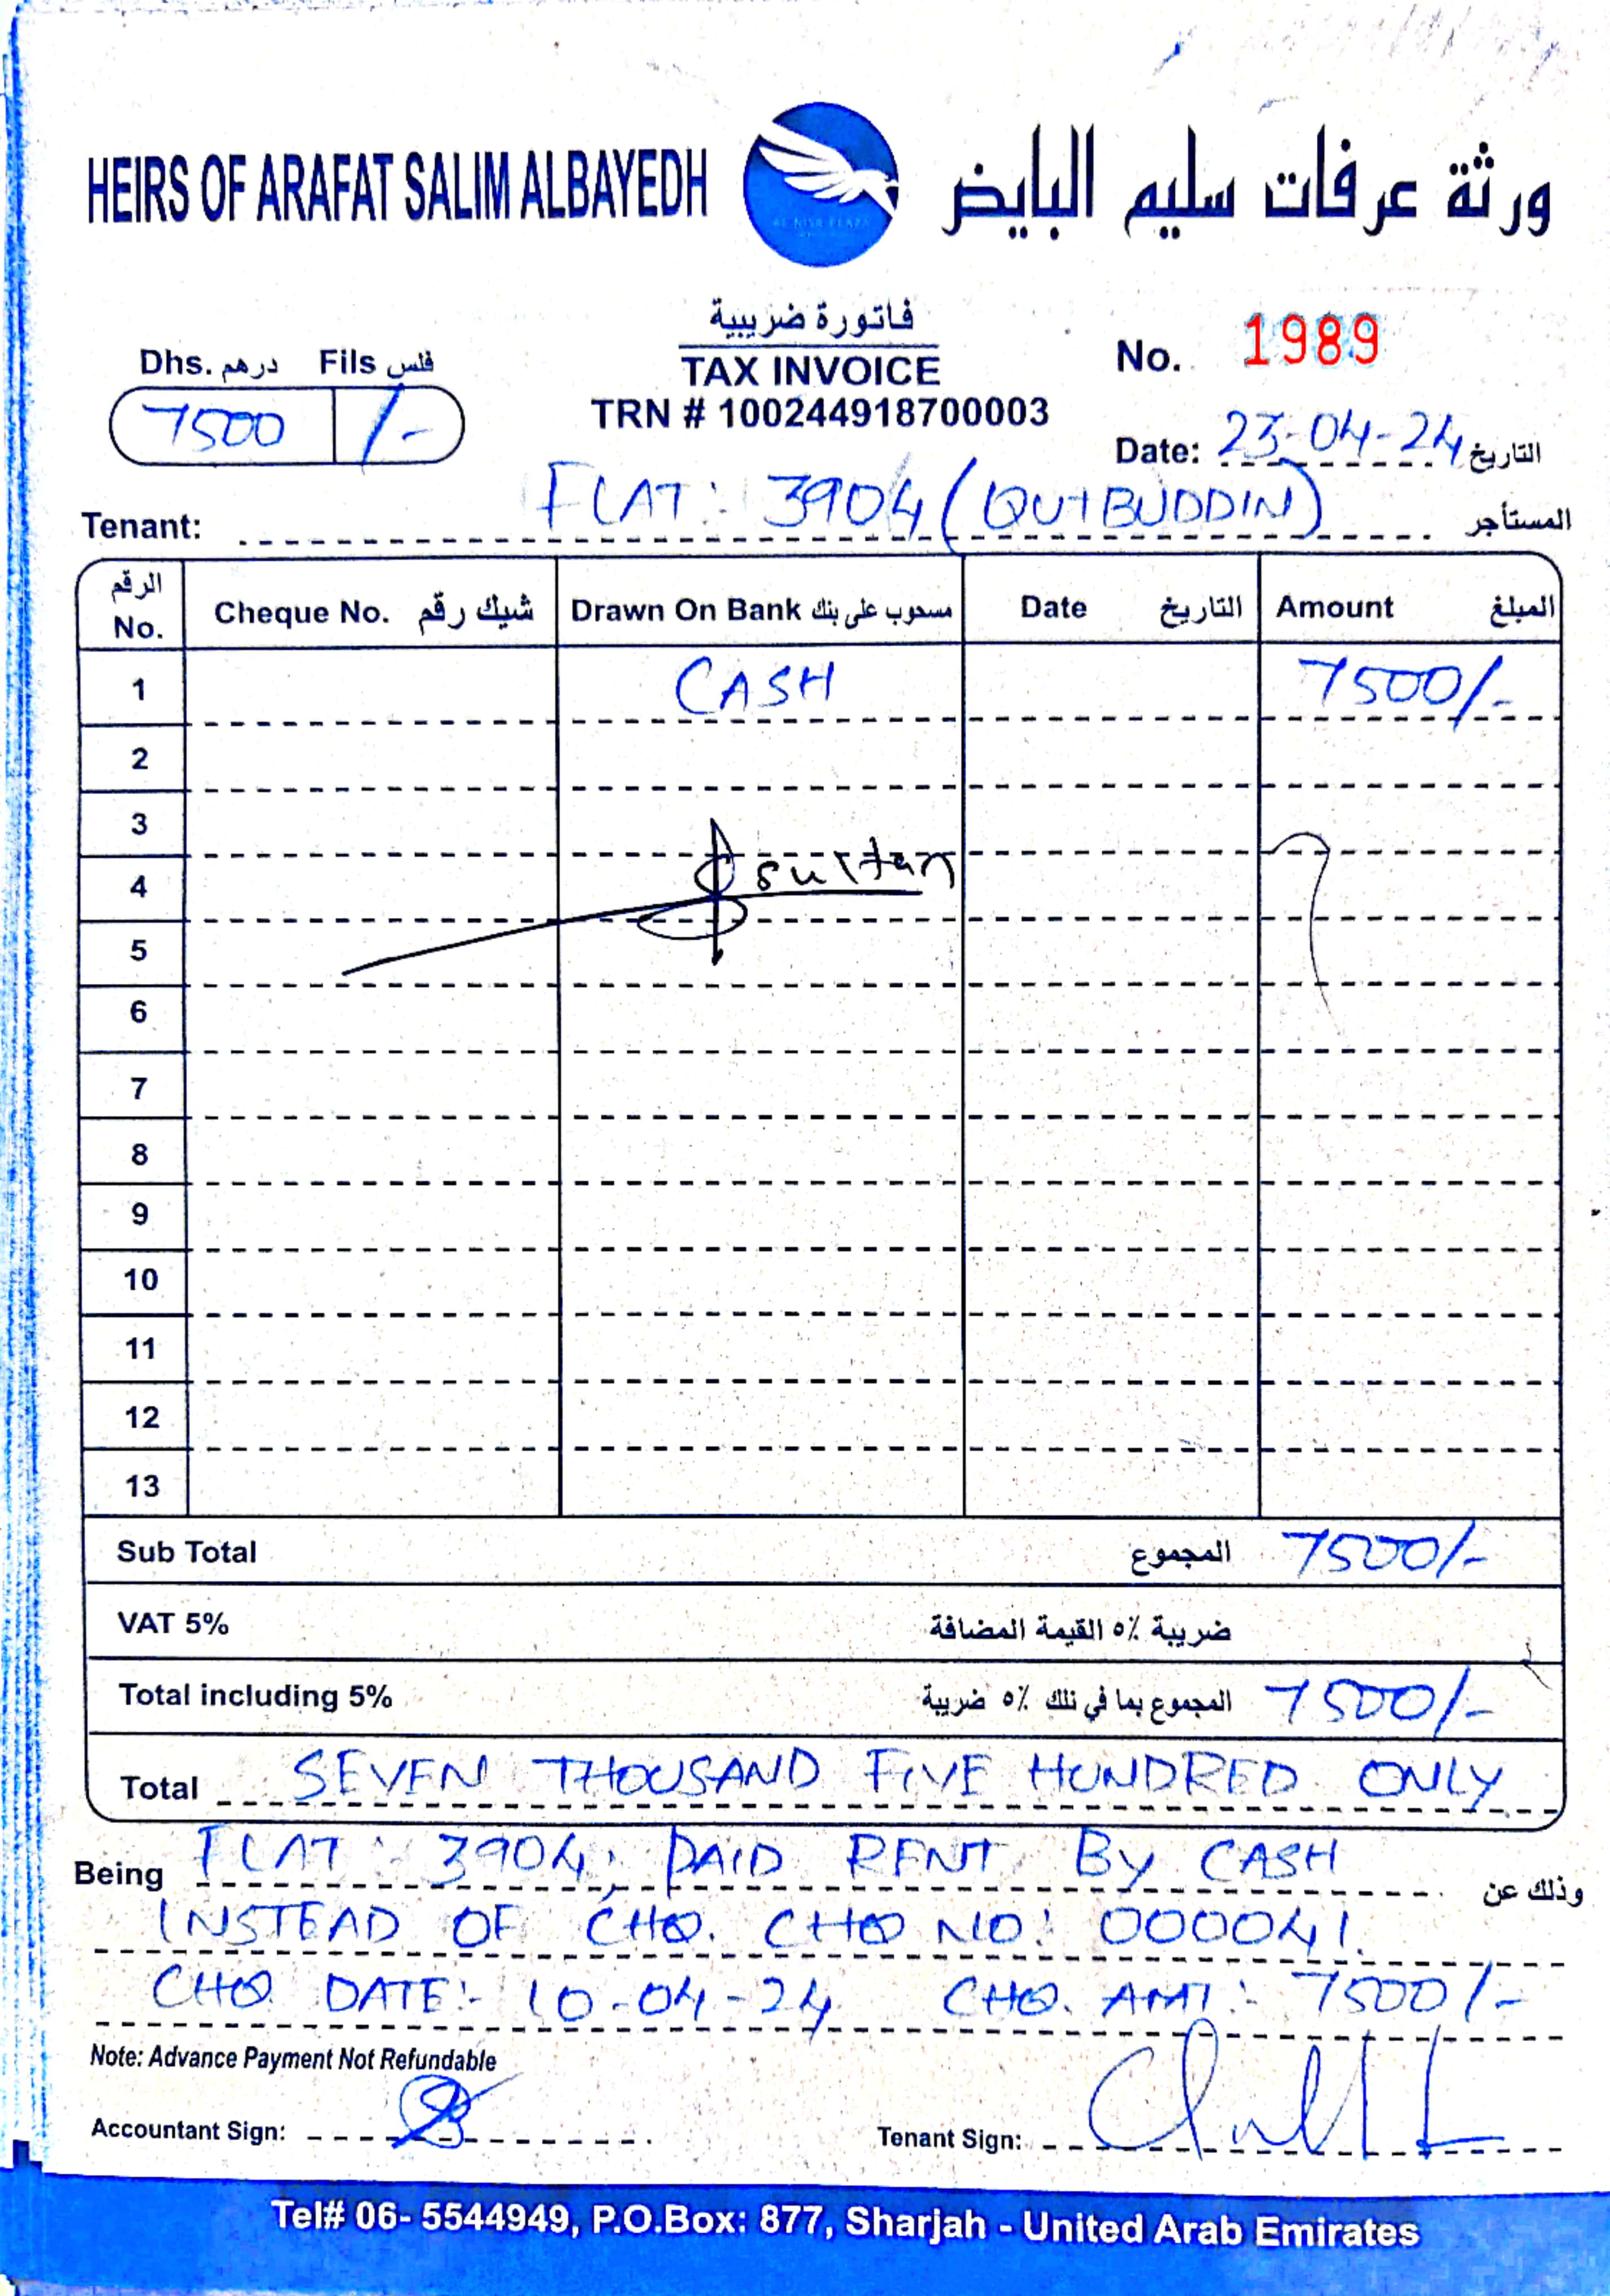 HEIRS OF ARAFAT SALIM ALBAYEDH
ورثة عرفات سليم البايض
AL NISR PLAZA
فاتورة ضريبية
TAX INVOICE
TRN # 100244918700003
No. 1989
Dhs. درهم Fils فلس
7500 /-
Date: 23-04-24 التاريخ
Tenant: FLAT: 3904 (QUTBUDDIN) المستأجر
الرقم No. Cheque No. شيك رقم Drawn On Bank مسحوب على بنك Date التاريخ Amount المبلغ
1 CASH 7500/-
2
3
4 sultan
5
6
7
8
9
10
11
12
13
Sub Total المجموع 7500/-
VAT 5% ضريبة ٥٪ القيمة المضافة
Total including 5% المجموع بما في ذلك ٥٪ ضريبة 7500/-
Total SEVEN THOUSAND FIVE HUNDRED ONLY
Being FLAT: 3904, PAID RENT BY CASH وذلك عن
INSTEAD OF CHQ. CHQ NO: 000041.
CHQ DATE:- 10-04-24 CHQ. AMT:- 7500/-
Note: Advance Payment Not Refundable
Accountant Sign:
Tenant Sign:
Tel# 06- 5544949, P.O.Box: 877, Sharjah - United Arab Emirates